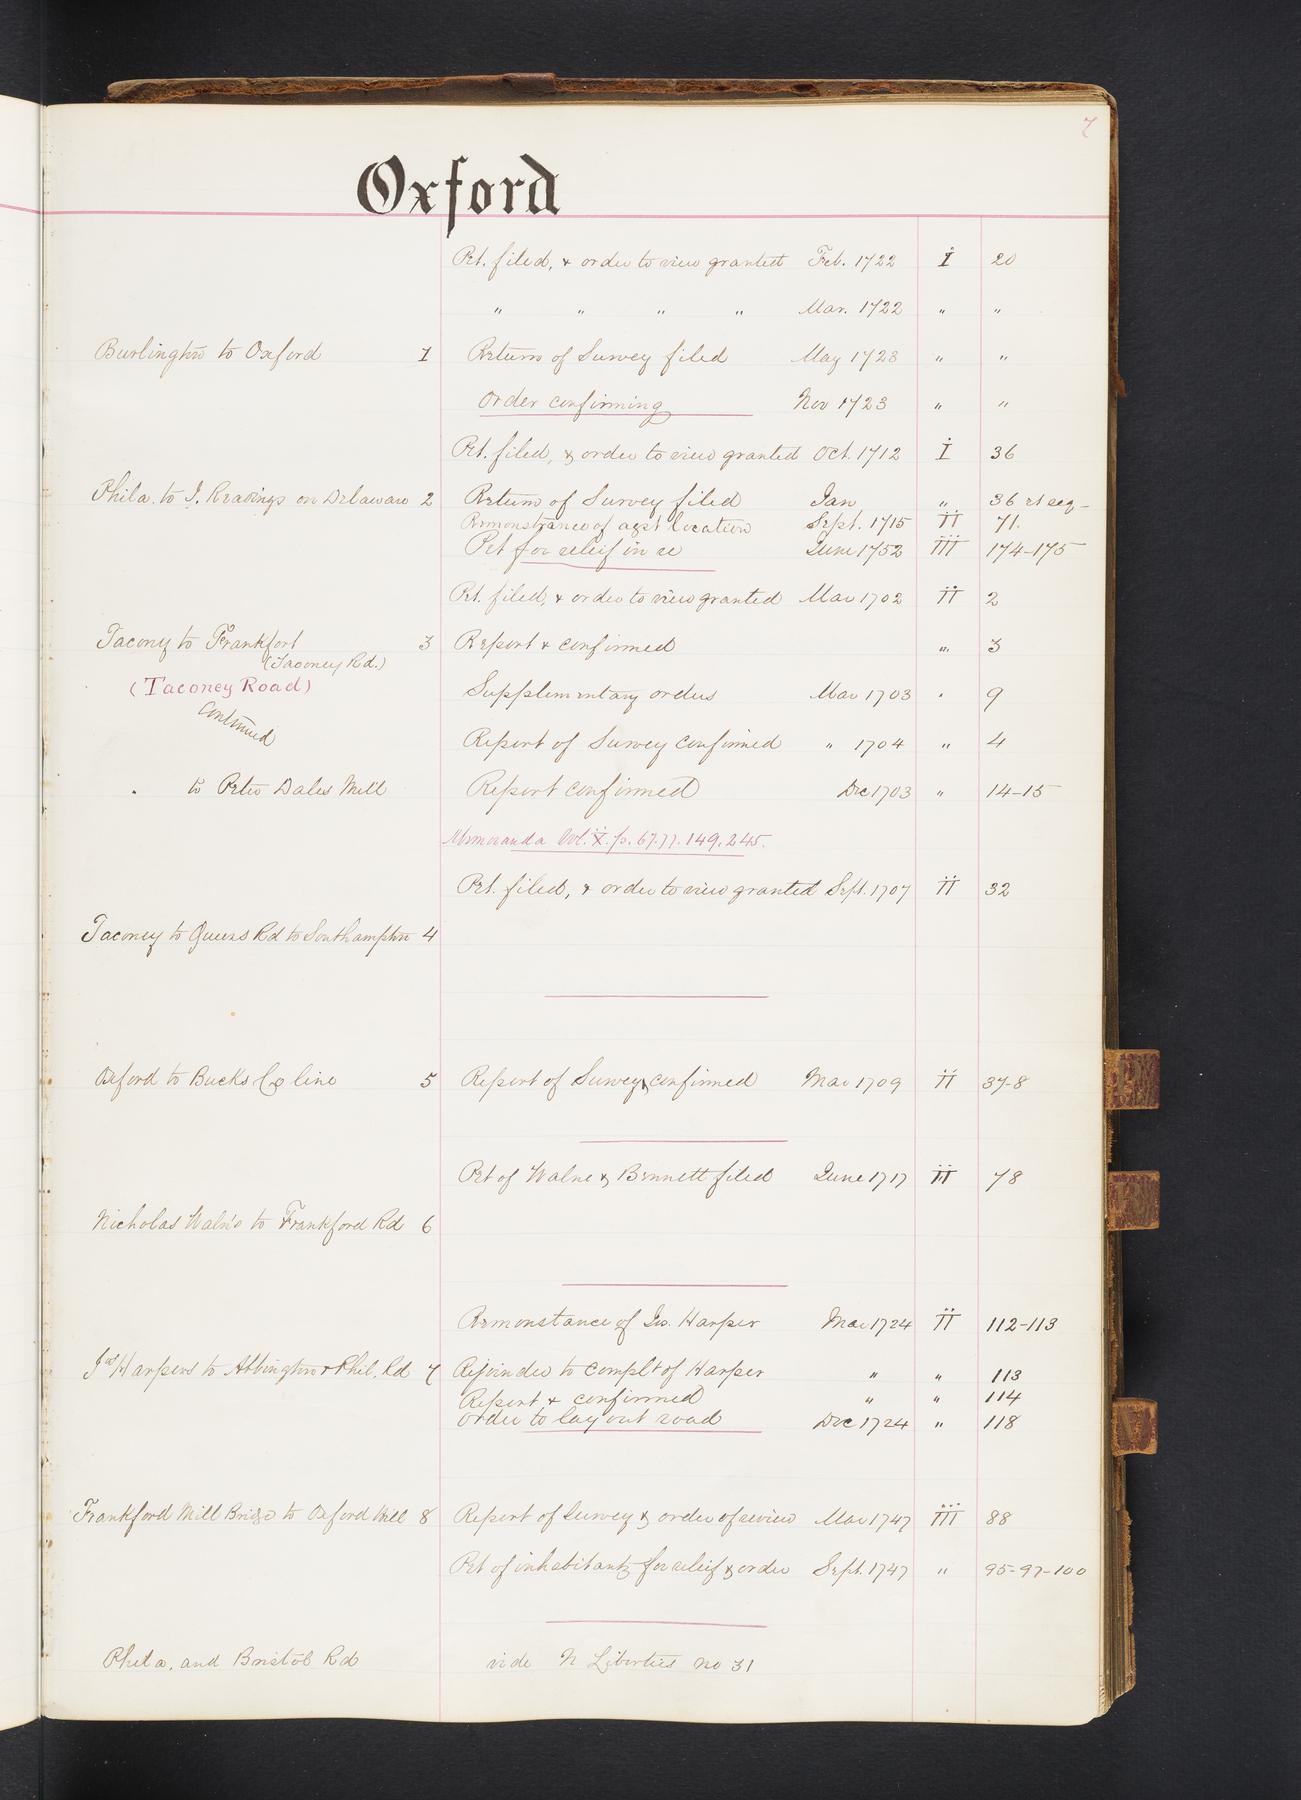 7
Oxford
Pet. filed, & order to view granted Feb. 1722 I 20
" " " " Mar. 1722 " "
Burlington to Oxford 1 Return of Survey filed May 1723 " "
Order confirming Nov 1723 " "
Pet. filed, & order to view granted Oct. 1712 I 36
Phila. to J. Readings on Delaware 2 Return of Survey filed Jan " 36 et seq-
Remonstrance of agst location Sept. 1715 II 71.
Pet for releif in re June 1752 III 174-175
Pet. filed, & order to view granted Mar 1702 II 2
Tacony to Frankfort 3 Report & confirmed " 3
(Taconey Rd.)
(Taconey Road) Supplementary orders Mar 1703 " 9
Continued
Report of Survey confirmed " 1704 " 4
" to Peter Dales Mill Report confirmed Dec 1703 " 14-15
Memoranda Vol. X. p. 67.77.149.245.
Pet. filed, & order to view granted Sept. 1707 II 32
Taconey to Queens Rd to Southampton 4
Oxford to Bucks Co line 5 Report of Survey & confirmed Mar 1709 II 37-8
Pet of Walne & Bennett filed June 1717 II 78
Nicholas Waln's to Frankford Rd 6
Remonstance of Jos. Harper Mar 1724 II 112-113
Jos Harpers to Abbington & Phil. Rd 7 Rejoinder to complt of Harper " " 113
Report & confirmed " " 114
Order to lay out road Dec 1724 " 118
Frankford Mill Bridge to Oxford Mill 8 Report of Survey & order of review Mar 1747 III 88
Pet of inhabitants for releif & order Sept. 1747 " 95-97-100
Phila. and Bristol Rd vide N Liberties No 31